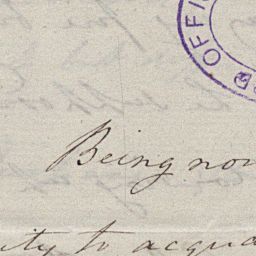 OFFI
Being now
ity to acqua